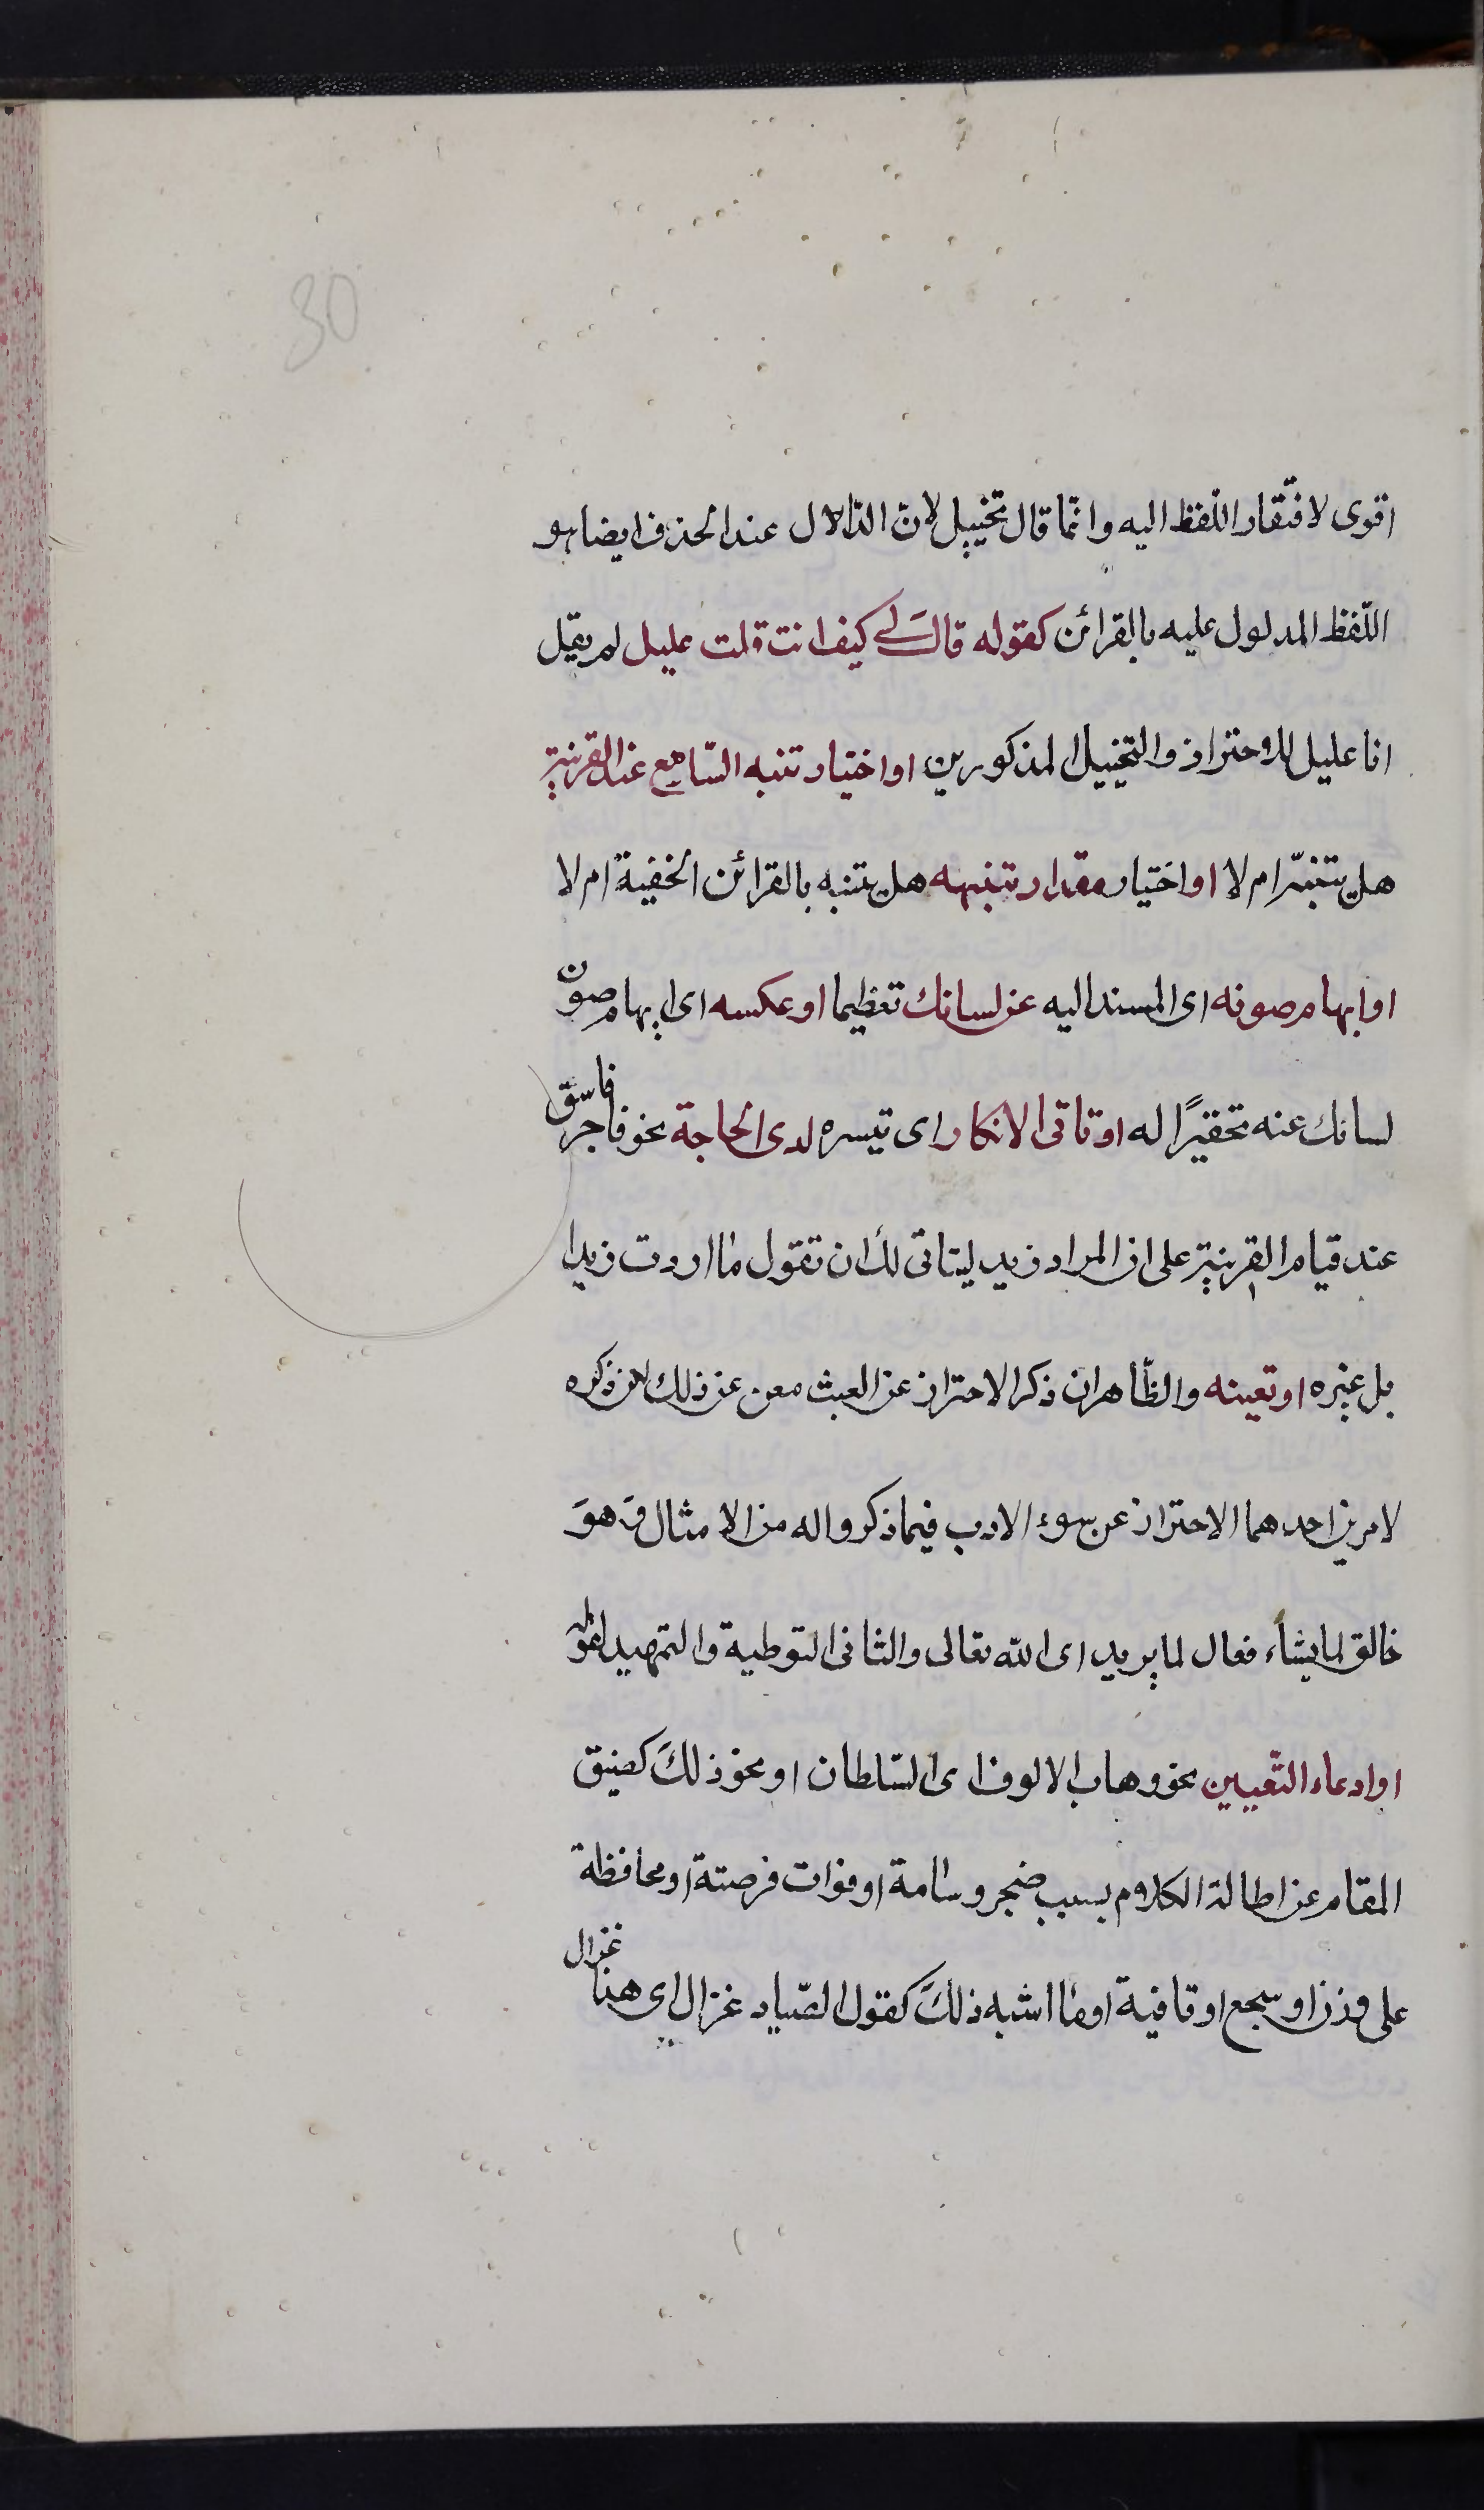 30
اقوى لافتقار اللّفظ اليه وانّما قال تخييل لانّ الدّالّ لال عند الحذف ايضا هو
اللّفظ المدلول عليه بالقرائن كقوله قال لي كيف انت قلت عليل لم يقل
انا عليل للاحتراز والتخييل المذكورين او اختيار تنبه السّامع عند القرينة
هل يتنبّه ام لا او اختيار مقدار تنبهه هل يتنبه بالقرائن الخفية ام لا
او ايهام صونه اى المسند اليه عن لسانك تعظيما او عكسه اى ايهام صون
لسانك عنه تحقيرًا له او تاتى الانكار اى تيسره لدى الحاجة نحو فاجر فاسق
عند قيام القرينة على ان المراد زيد ليتاتى لك ان تقول ما اردت زيدا
بل غيره او تعينه والظّاهر ان ذكر الاحتراز عن العبث مغن عن ذلك لكن ذكره
لامرين احدهما الاحتراز عن سوء الادب فيما ذكروا له من الامثال وَهوَ
خالق لما يشاء فعال لما يريد اى الله تعالى والثانى التوطية والتمهيد لقوله
او ادعاء التّعيين نحو وهاب الالوف اى السّلطان او نحو ذلكَ كضيق
المقام عن اطالة الكلام بسبب ضجر وسامة او فوات فرصته او محافظة
على وزن او سجع او قافية او ما اشبه ذلكَ كقول الصّياد غزال اى هذا غزال